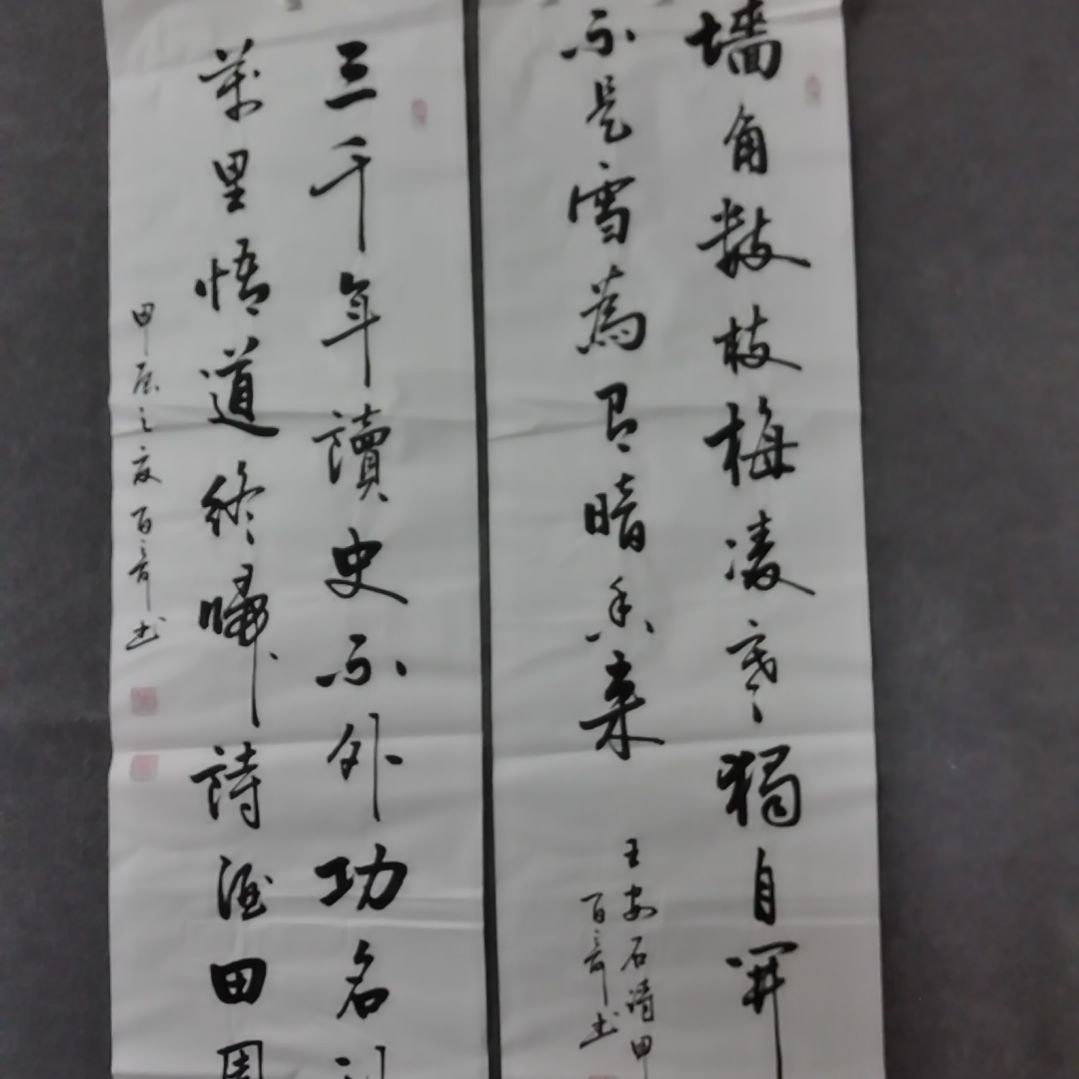 墙角数枝梅凌寒獨自開
不是雪為有暗香来
王安石诗甲
百奇书
三千年讀史不外功名利
萬里悟道终歸詩酒田園
甲辰之夏百奇书